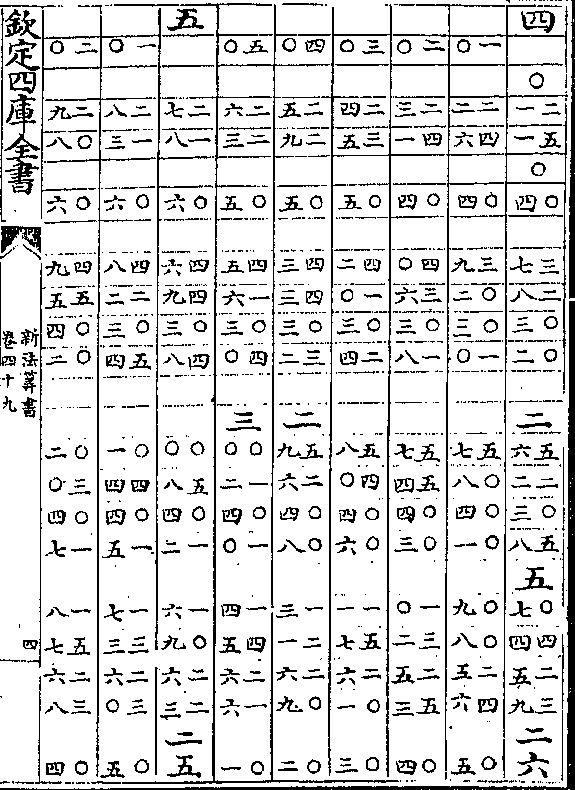 四 〇 二一 五一 〇 〇四 三七 二八 〇三 〇二 二 五六 二二 〇三 五八 五 〇七 四四 二五 三九 二六
一〇 二二 四六 〇四 三九 〇二 〇三 一〇 五七 〇八 〇四 〇一 〇九 〇八 二五 四六 〇五
二〇 二三 四一 〇四 四〇 三六 〇三 一八 五七 五四 〇四 〇三 一〇 三二 二五 五三 〇四
三〇 二四 三五 〇五 四二 一〇 〇三 二四 五八 四〇 〇四 〇六 一一 五七 二六 〇一 〇三
四〇 二五 二九 〇五 四三 四三 〇三 三二 二 五九 二六 〇四 〇八 一三 二一 二六 〇九 〇二
五〇 二六 二三 〇五 四五 一六 〇三 四〇 三 〇〇 一二 〇四 一〇 一四 四五 二六 一六 〇一
五 二七 一八 〇六 四六 四九 〇三 四八 〇〇 五八 〇四 一二 一六 〇九 二六 二三 二五
一〇 二八 一三 〇六 四八 二二 〇三 五四 〇一 四四 〇四 一五 一七 三三 二六 三〇 〇五
二〇 二九 〇八 〇六 四九 五五 〇四 〇二 〇二 三〇 〇四 一七 一八 五七 二六 三八 〇四
欽定四庫全書
新法算書
卷四十九
四